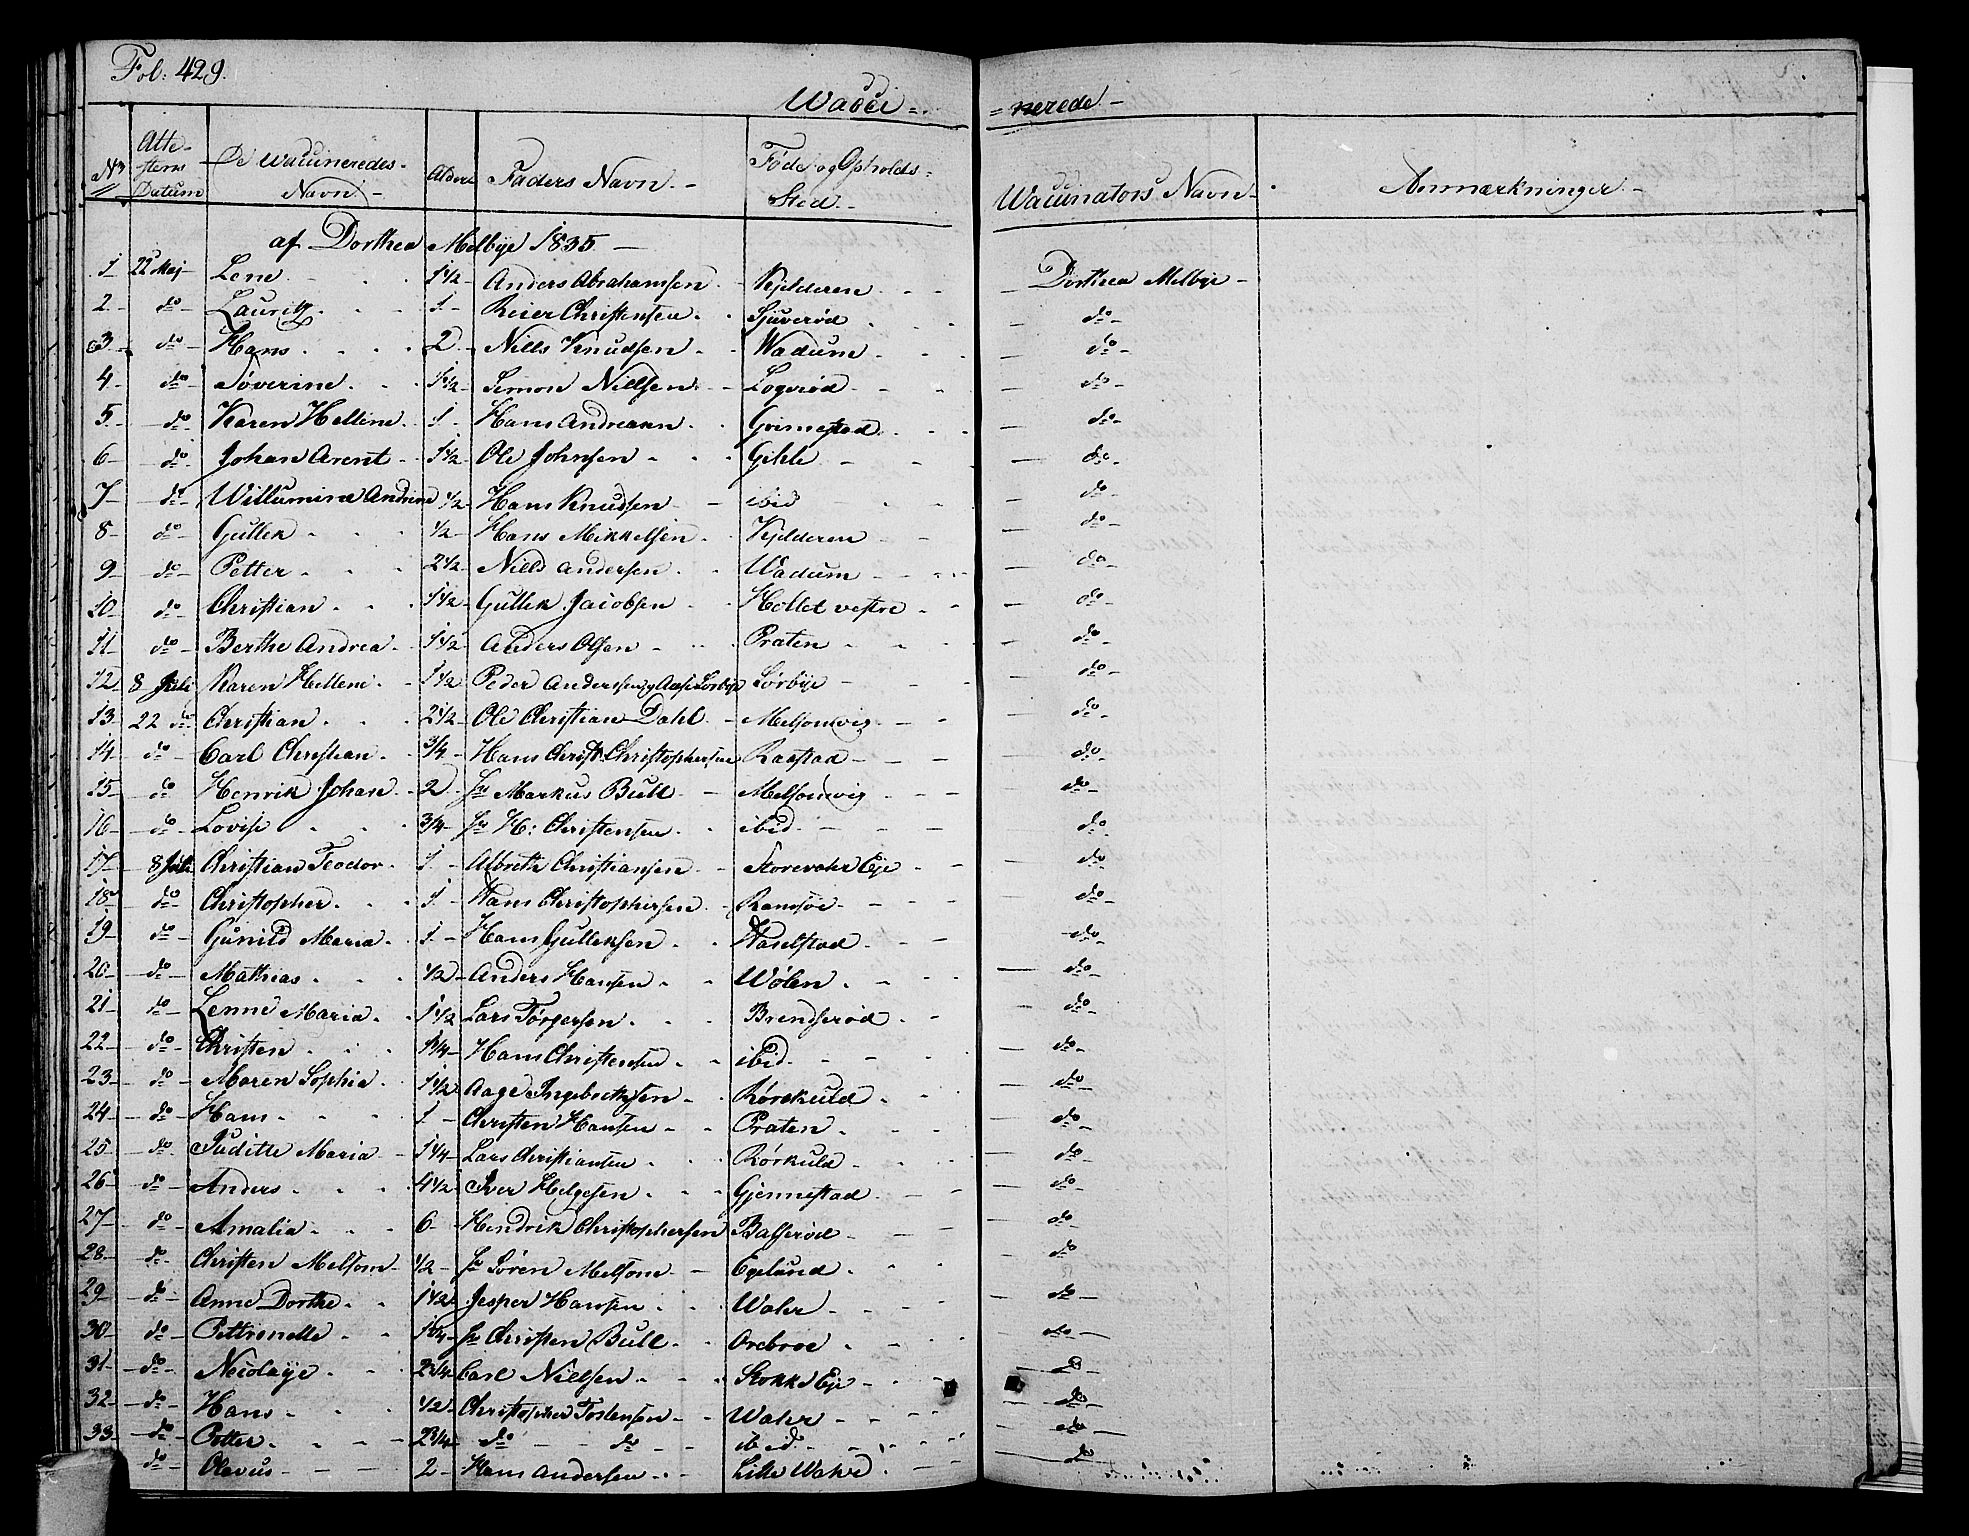 Fol: 429.
Wacci - nerede. -
No Atte- stens Datum De Waccineredes Navn. - Alder Faders Navn. - Føde- og Opholds- Sted. - Waccinators Navn - Anmærkninger. -
af Dorthea Melbye 1835 -
1 22 Maj Lene 1 1/2 Anders Abrahamsen Kjelderen Dorthea Melbye -
2 do Lauritz 1 Reier Christensen Sjuverød do
3 do Hans 2 Niels Knudsen Wadum do
4 do Søverine 1 1/2 Simon Nielsen Logerød do
5 do Karen Hellene 1 Hans Andreasen Grimestad do
6 do Johan Arent 1 1/2 Ole Johnsen Gihle do
7 do Willumine Andrine 1/2 Hans Knudsen ibid do
8 do Gullek 1/2 Hans Mikkelsen Kjelderen do
9 do Petter 2 1/2 Niels Andersen Wadum do
10 do Christian 1 1/2 Gullek Jacobsen Hollet vestre do
11 do Berthe Andrea 1 1/2 Anders Olsen Praten do
12 8 Juli Karen Hellene 1 1/2 Peder Anderssen og Aase Sørbye Sørbye do
13 22 do Christian 2 1/2 Ole Christian Dahl Melsomvig do
14 do Carl Christian 3/4 Hans Christ: Christophersen Rastad do
15 do Henrik Johan 2 Markus Bull Melsomvig do
16 do Lovise 3/4 H: Christensen ibid do
17 8 Juli Christian Teodor 1 Albreth Christiansen Storevahr Eje do
18 do Christopher 1 Hans Christophersen Ramsøe do
19 do Gunild Maria 1 Hans Gulleksen Haselstad do
20 do Mathias 1/2 Anders Hansen Wølen do
21 do Lenne Maria 1 1/2 Lars Torgersen Brendserød do
22 do Christen 1 3/4 Hans Christensen ibid do
23 do Maren Sophia 1 1/2 Aage Ingebrethsen Rørkuld do
24 do Hans 1 Christen Hansen Praten do
25 do Juditte Maria 1 1/4 Lars Christiansen Rørkuld do
26 do Anders 4 1/2 Iver Helgesen Gjennestad do
27 do Amalia 6 Hendrik Christophersen Balserød do
28 do Christen Melsom 1/2 Søren Melsom Egelund do
29 do Anne Dorthe 1 1/2 Jesper Hansen Wahr do
30 do Pettronelle 1 3/4 Christen Bull Orebroe do
31 do Necolaye 2 3/4 Carl Nielsen Stokke Eje do
32 do Hans 1/2 Christopher Tostensen Wahr do
33 do Petter 2 3/4 do do ibid do
do Olevus 2 Hans Andersen Lille Wahr do